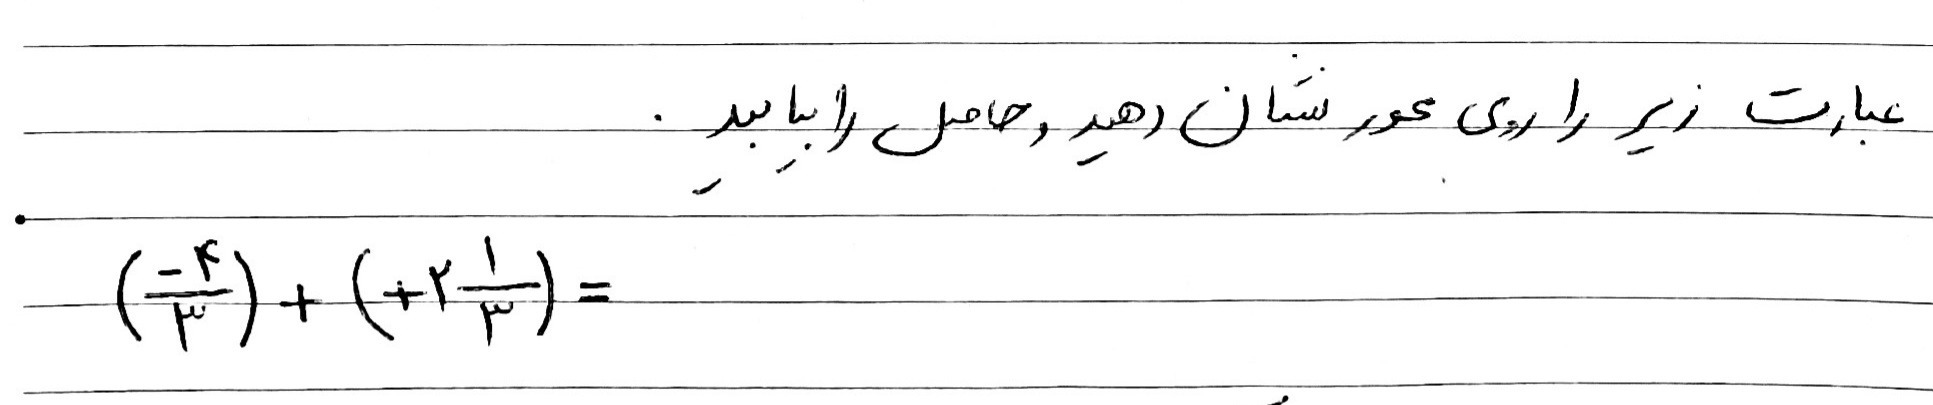 عبارت زیر را روی محور نشان دهید و حاصل را بیابید .
(-۴/۳) + (+۲ ۱/۳) =